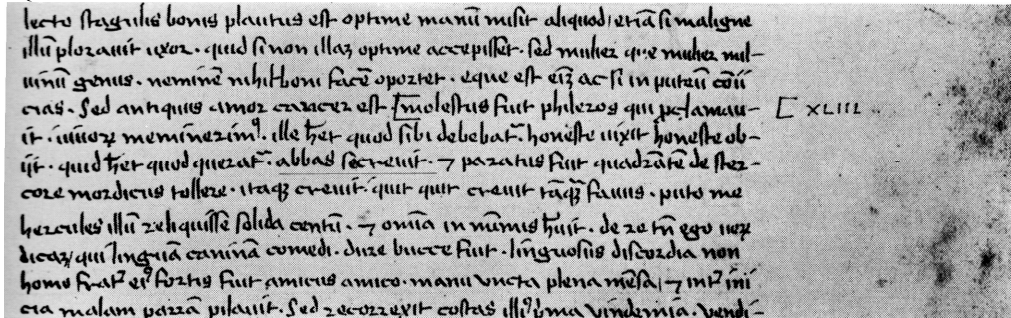 lecto stragulis bonis plautus est optime manū misit aliquod / etiā si maligne
illū plorauit uxor · quid si non illaʒ optime accepisset · Sed mulier que mulier mil-
uinū genus · neminē nihil boni facē oportet · eque est eīʒ ac si in puteū cōii
cias · Sed antiquus amor carcer est [molestus fuit phileros qui ꝓclamau- [ XLIII
it · iuuoꝝ meminerimꝰ · ille hēt quod sibi debebat᷑ honeste uixit honeste ob-
iit · quid hēt quod querat᷑ · abbas secreuit · ⁊ paratus fuit quadrātē de ster-
core mordicus tollere · itaqꝫ creuit · quit quit creuit tāqꝫ fauus · puto me
hercules illū reliquisse solida centū · ⁊ omīa in nūmis hūit · de re tn̄ ego ueꝝ
dicaʒ qui linguā caninā comedi · dure bucce fuit · linguosus discordia non
homo frat᷑ eiꝰ fortis fuit amicus amico · manu uncta plena mēsa / ⁊ int᷑ ini
cia malam parrā pilauit · Sed recorrexit costas illiꝰ p̄ma uindemia · uendi-